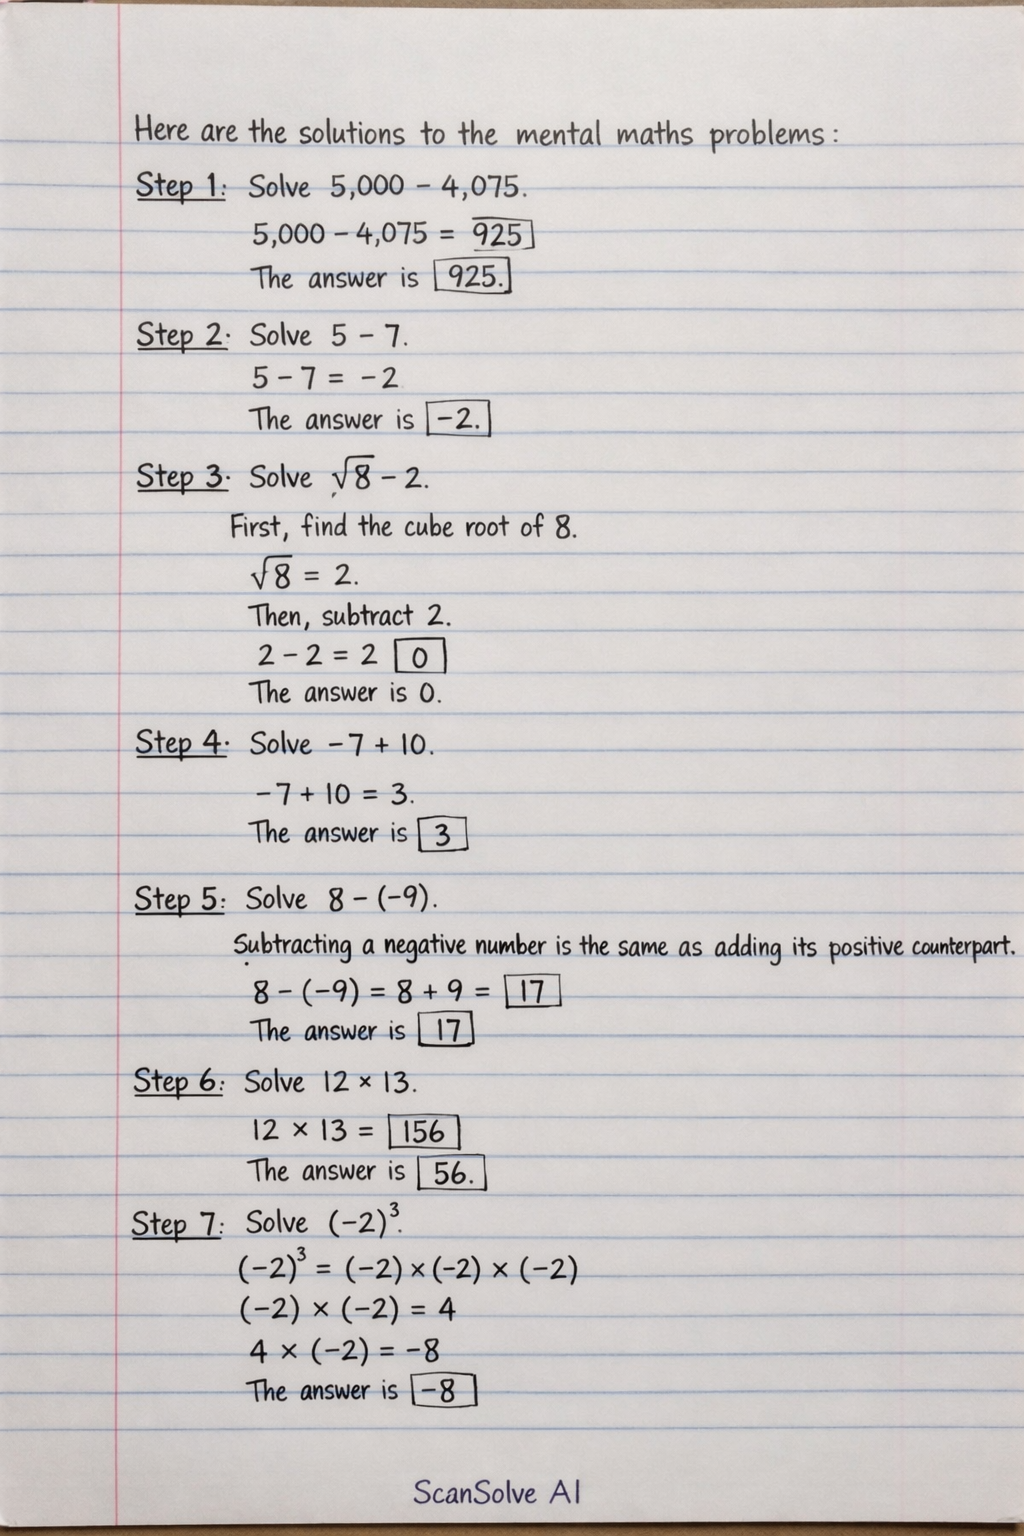 Here are the solutions to the mental maths problems:
Step 1: Solve 5,000 − 4,075.
5,000 − 4,075 = 925
The answer is 925.
Step 2. Solve 5 − 7.
5 − 7 = −2
The answer is −2.
Step 3. Solve √8 − 2.
First, find the cube root of 8.
√8 = 2.
Then, subtract 2.
2 − 2 = 2 0
The answer is 0.
Step 4. Solve −7 + 10.
−7 + 10 = 3.
The answer is 3
Step 5: Solve 8 − (−9).
Subtracting a negative number is the same as adding its positive counterpart.
8 − (−9) = 8 + 9 = 17
The answer is 17
Step 6: Solve 12 × 13.
12 × 13 = 156
The answer is 56.
Step 7: Solve (−2)³.
(−2)³ = (−2) × (−2) × (−2)
(−2) × (−2) = 4
4 × (−2) = −8
The answer is −8
ScanSolve AI